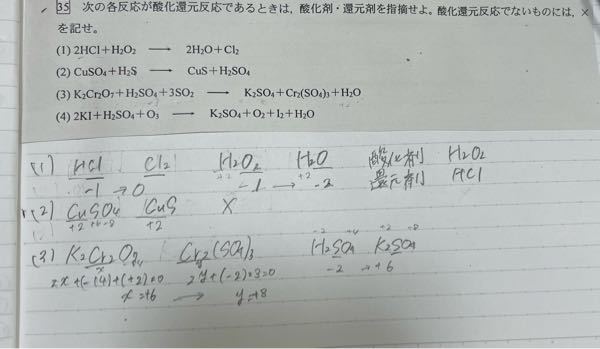 35 次の各反応が酸化還元反応であるときは,酸化剤・還元剤を指摘せよ。酸化還元反応でないものには,×
を記せ。
(1) 2HCl+H₂O₂ → 2H₂O+Cl₂
(2) CuSO₄+H₂S → CuS+H₂SO₄
(3) K₂Cr₂O₇+H₂SO₄+3SO₂ → K₂SO₄+Cr₂(SO₄)₃+H₂O
(4) 2KI+H₂SO₄+O₃ → K₂SO₄+O₂+I₂+H₂O
(1) HCl Cl₂ H₂O₂ H₂O 酸化剤 H₂O₂
-1 → 0 -1 → -2 還元剤 HCl
(2) CuSO₄ CuS ×
+2 +6 -8 +2
(3) K₂Cr₂O₇ Cr₂(SO₄)₃ H₂SO₄ K₂SO₄
2y+(-2)×3=0 -2 → +6
x=+6 →